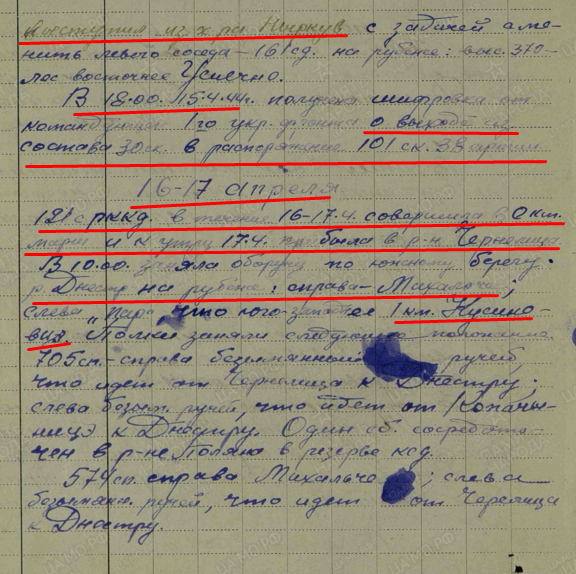 выступил из х ра Ниркув с задачей сме-
нить левого соседа – 161 сд. на рубеже: выс. 370 –
лес восточнее Усцечно.
В 18.00. 15.4.44г. получена шифровка от
командующего 1го укр. фронта о выходе из
состава 30 ск. в распоряжение 101 ск. 38 армии
16-17 апреля
121 с рккд. в течение 16-17.4. совершила 80 км.
марш и к утру 17.4. прибыла в р-н Чернелица
В 10.00. заняла оборону по южному берегу
р. Днестр на рубеже: справа – Михальче;
слева что юго-западнее 1 км. Кусино-
виз. Полки заняли следующее положение
705 сп. – справа безыманный ручей,
что идет от Чернелица к Днестру;
слева безым. ручей, что идет от Копачи-
к Днестру. Один сб. сосредото-
чен в р-не Поляна в резерве ксд.
574 сп. справа Михальче; слева
безымян. ручей, что идет от Чернелица
к Днестру.